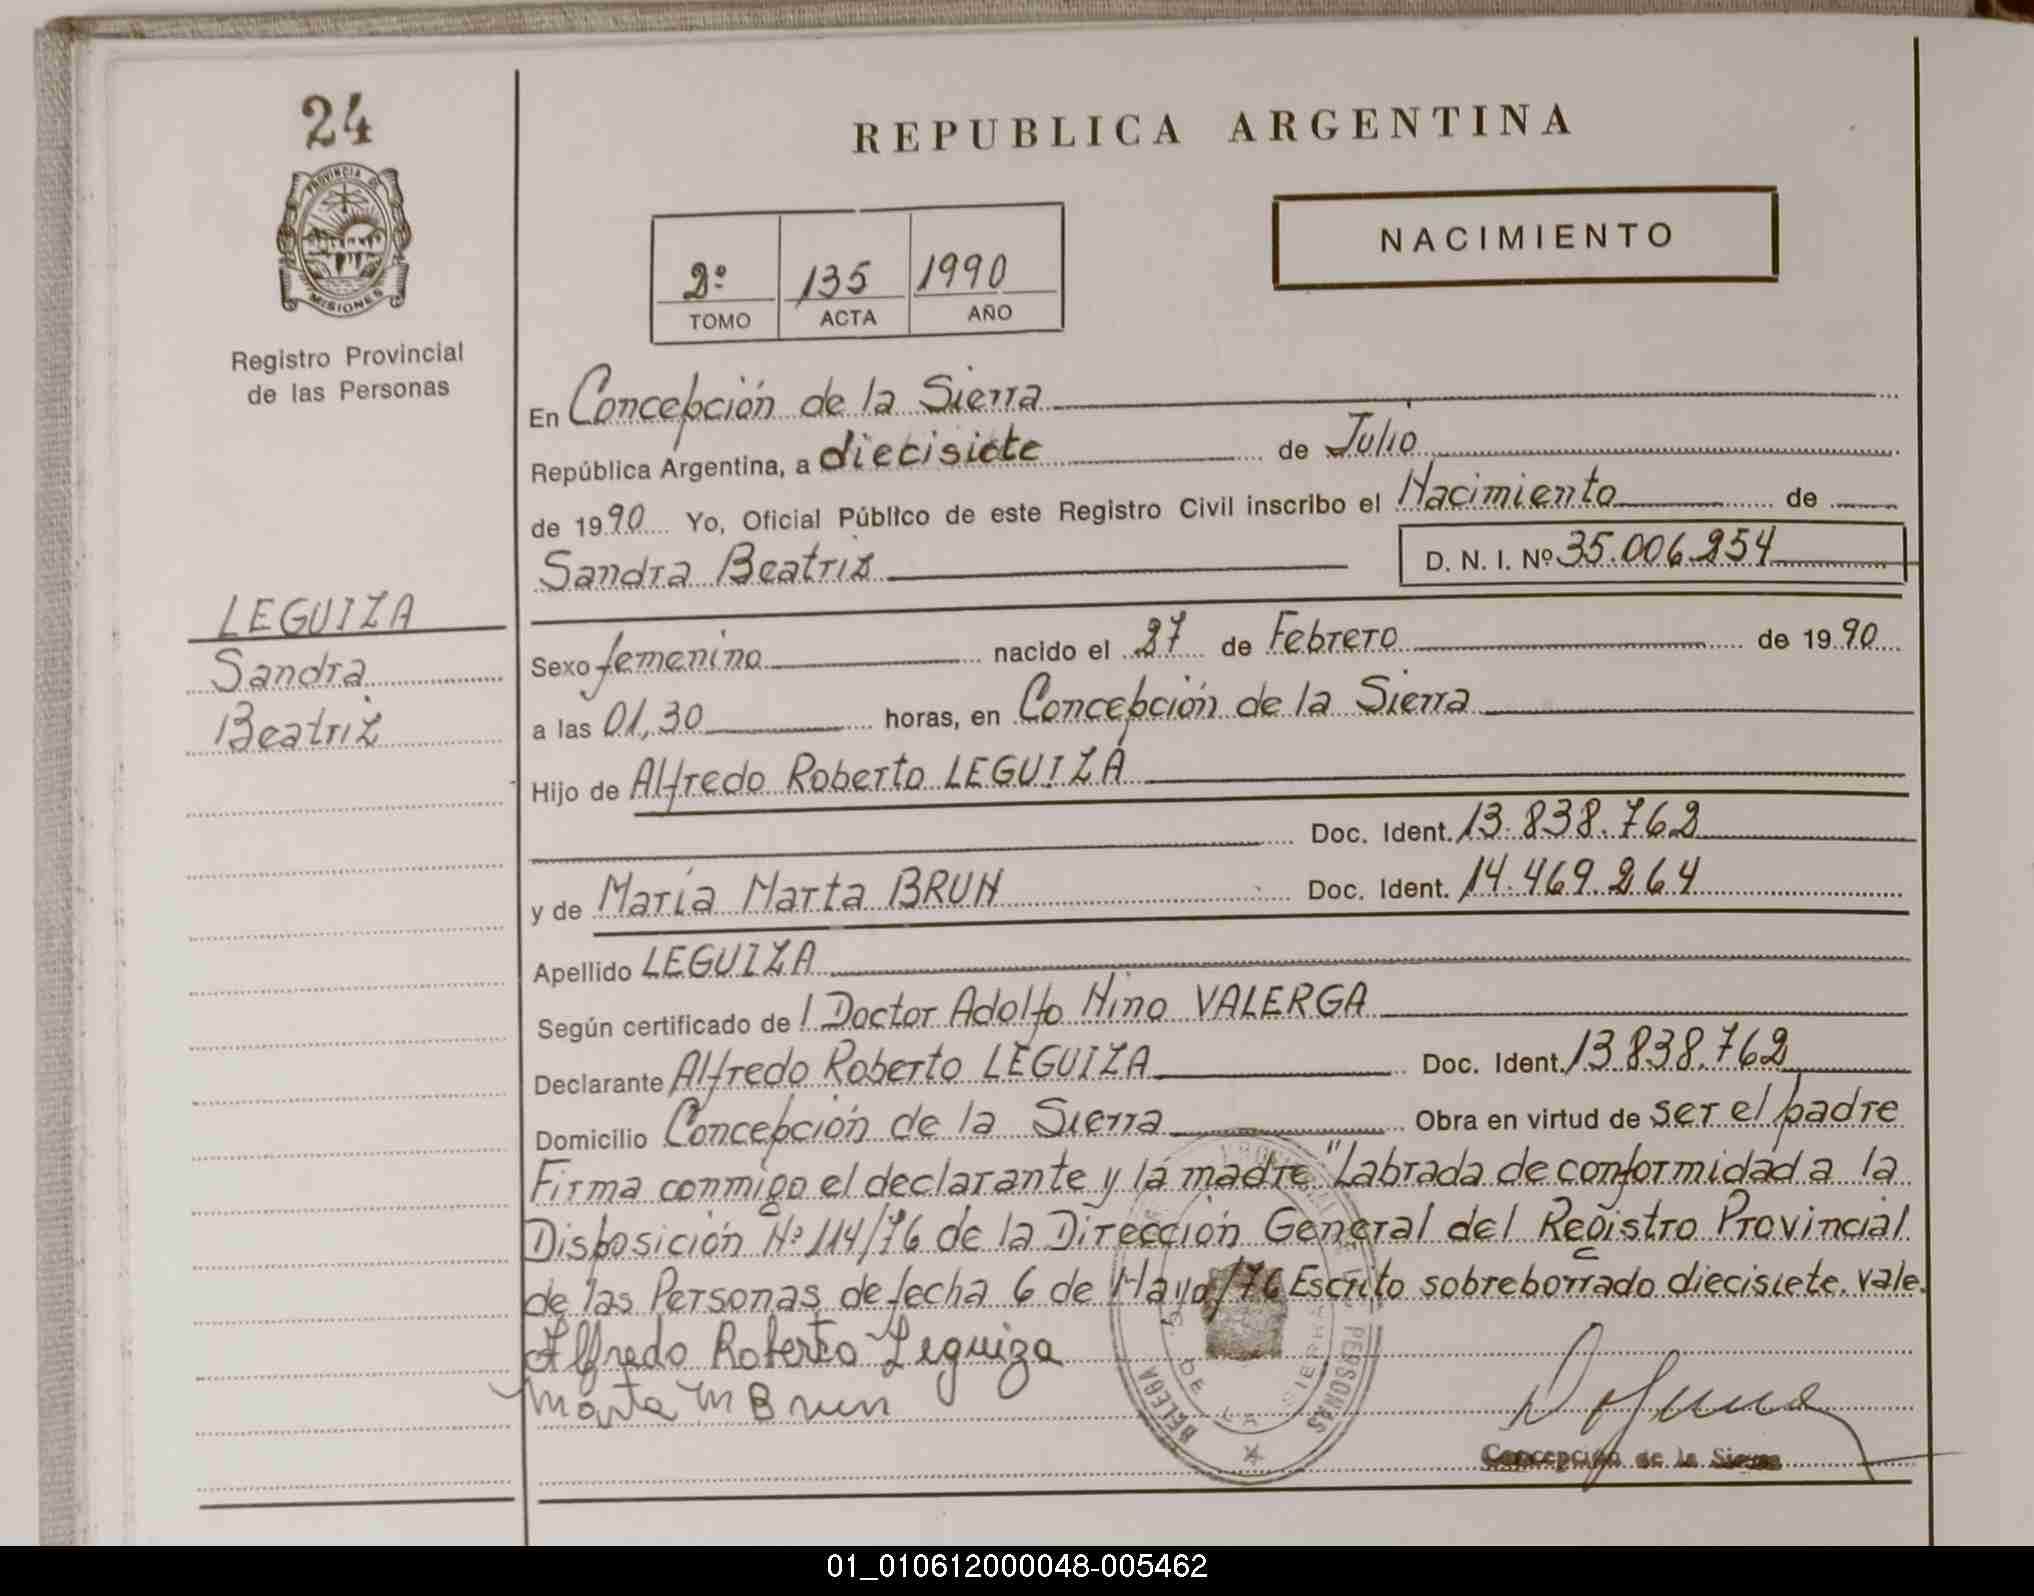 24
PROVINCIA DE
MISIONES
Registro Provincial
de las Personas
LEGUIZA
Sandra
Beatriz
REPUBLICA ARGENTINA
NACIMIENTO
2º 135 1990
TOMO ACTA AÑO
En Concepción de la Sierra
República Argentina, a diecisiete de Julio
de 1990 Yo, Oficial Público de este Registro Civil inscribo el Nacimiento de
Sandra Beatriz D. N. I. Nº 35.006.254
Sexo femenino nacido el 27 de Febrero de 1990
a las 01,30 horas, en Concepción de la Sierra
Hijo de Alfredo Roberto LEGUIZA
Doc. Ident. 13.838.762
y de María Marta BRUN Doc. Ident. 14.469.264
Apellido LEGUIZA
Según certificado de l Doctor Adolfo Nino VALERGA
Declarante Alfredo Roberto LEGUIZA Doc. Ident. 13.838.762
Domicilio Concepción de la Sierra Obra en virtud de ser el padre
Firma conmigo el declarante y la madre "Labrada de conformidad a la
Disposición Nº 114/76 de la Dirección General del Registro Provincial
de las Personas de fecha 6 de Mayo/76 Escrito sobreborrado diecisiete. vale.
Alfredo Roberto Leguiza
Marta M Brun
PERSONAS
DELEGA
DE LA SIERRA
Concepción de la Sierra
01_010612000048-005462